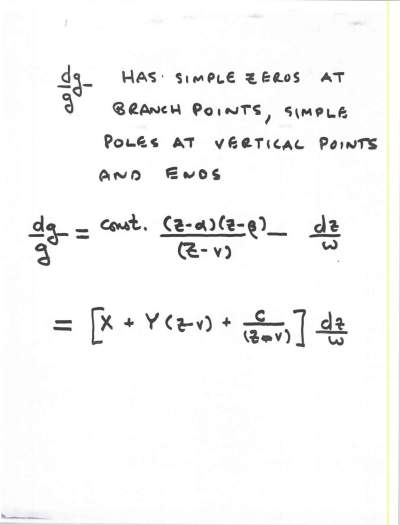 dg/g HAS SIMPLE ZEROS AT
BRANCH POINTS, SIMPLE
POLES AT VERTICAL POINTS
AND ENDS
dg/g = const. (z-α)(z-β)/(z-v) dz/w
= [X + Y(z-v) + c/(z-v)] dz/w